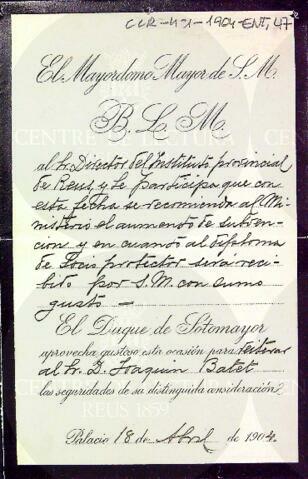 CLR-H31-1904-ENT, 47
El Mayordomo Mayor de S.M.
B. L. M.
al Sr. Director del Instituto provincial
de Reus, y le participa que con
esta fecha se recomienda al Mi-
nisterio el aumento de subven-
cion y en cuanto al diploma
de Socio protector será reci-
bido por S.M. con sumo
gusto —
El Duque de Sotomayor
aprovecha gustoso esta ocasión para reiterar
al Sr. D. Joaquin Batet
las seguridades de su distinguida consideración
Palacio 18 de Abril de 1904.
CENTRE DE LECTURA
REUS 1859